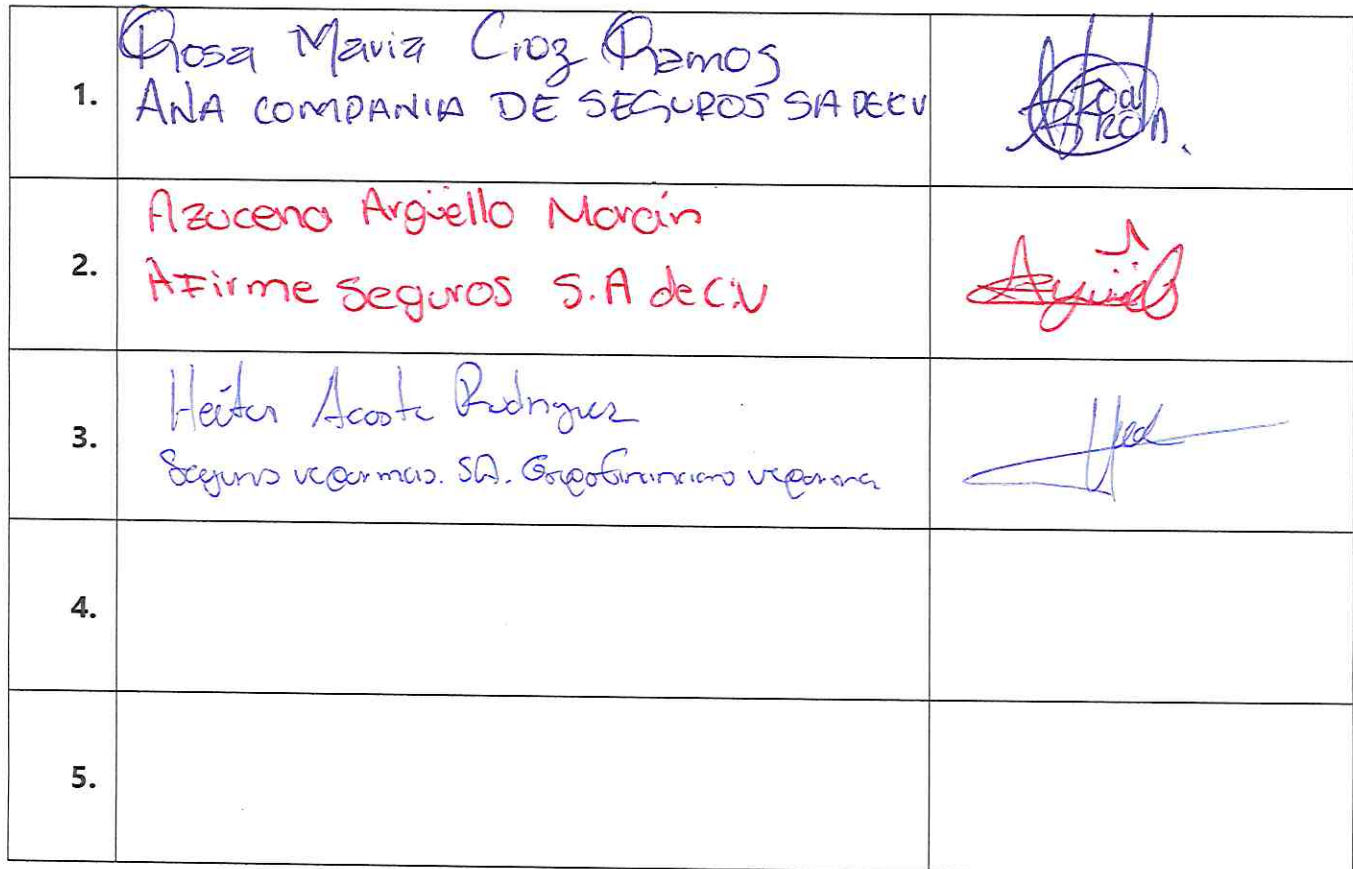 1.
Rosa Maria Cruz Ramos
ANA COMPANIA DE SEGUROS SA DE CV
2.
Azucena Argüello Morán
AFirme Seguros S.A de C.V
3.
Héctor Acosta Rodriguez
Seguros vepormas. SA. Grupo Financiero vepormas
4.
5.